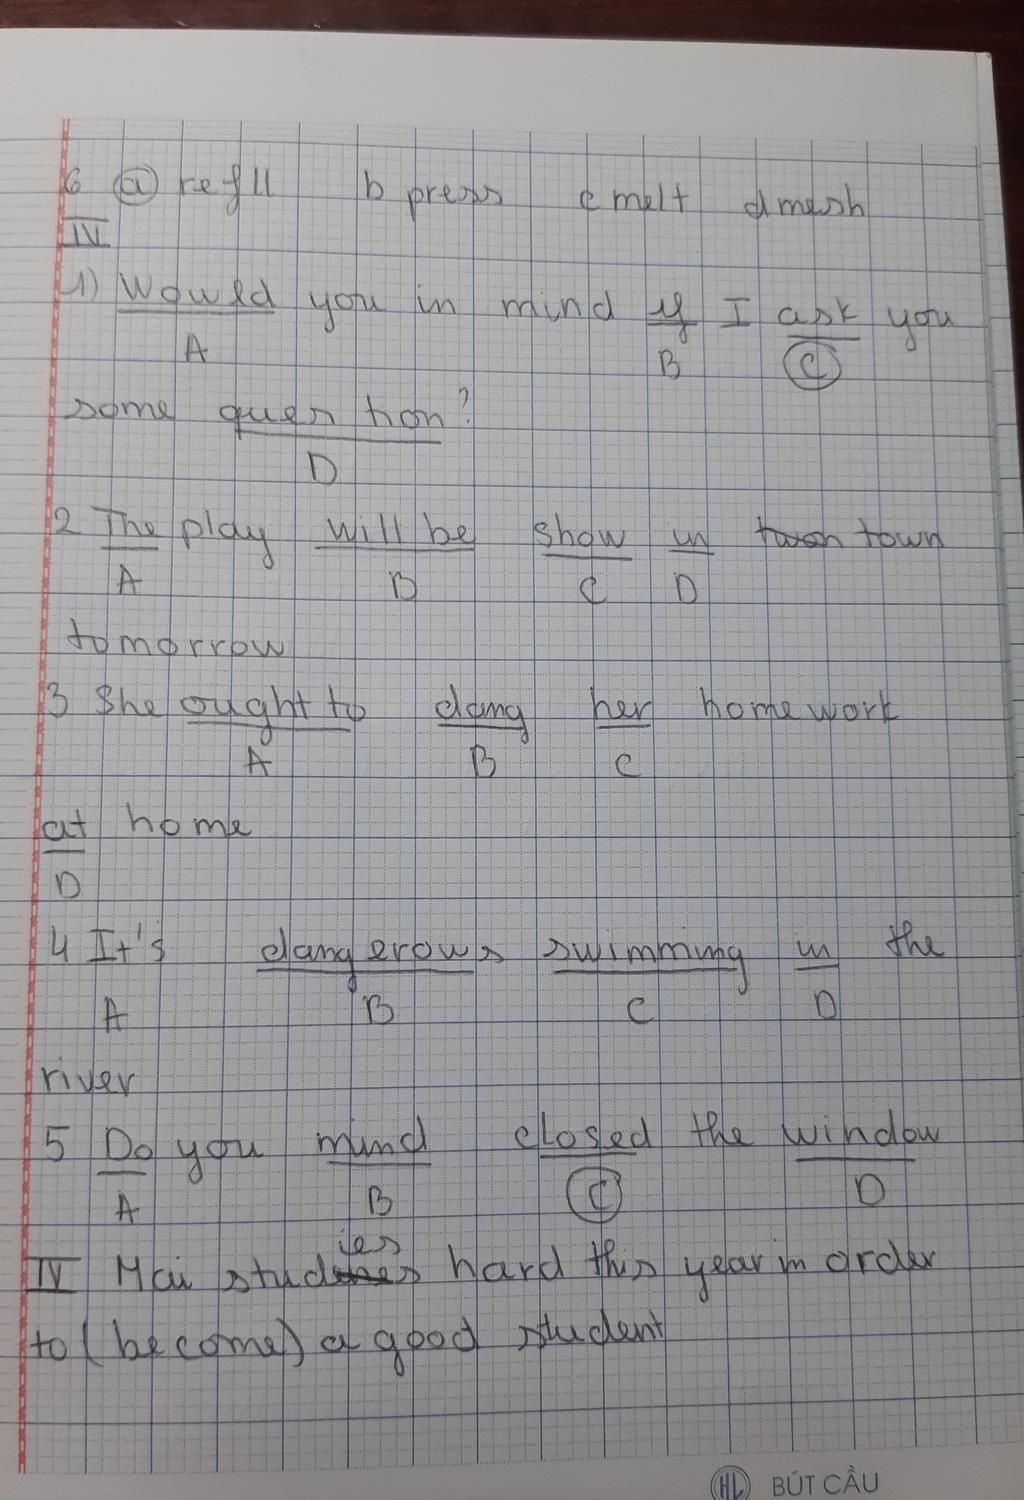 6 a refill b press c melt d mesh
IV
1) Would you in mind if I ask you
A B C
some question?
D
2 The play will be show in town
A B C D
tomorrow
3 She ought to doing her homework
A B C
at home
D
4 It's dangerous swimming in the
A B C D
river
5 Do you mind closed the window
A B C D
IV Mai studies hard this year in order
to (become) a good student
HL BÚT CẦU